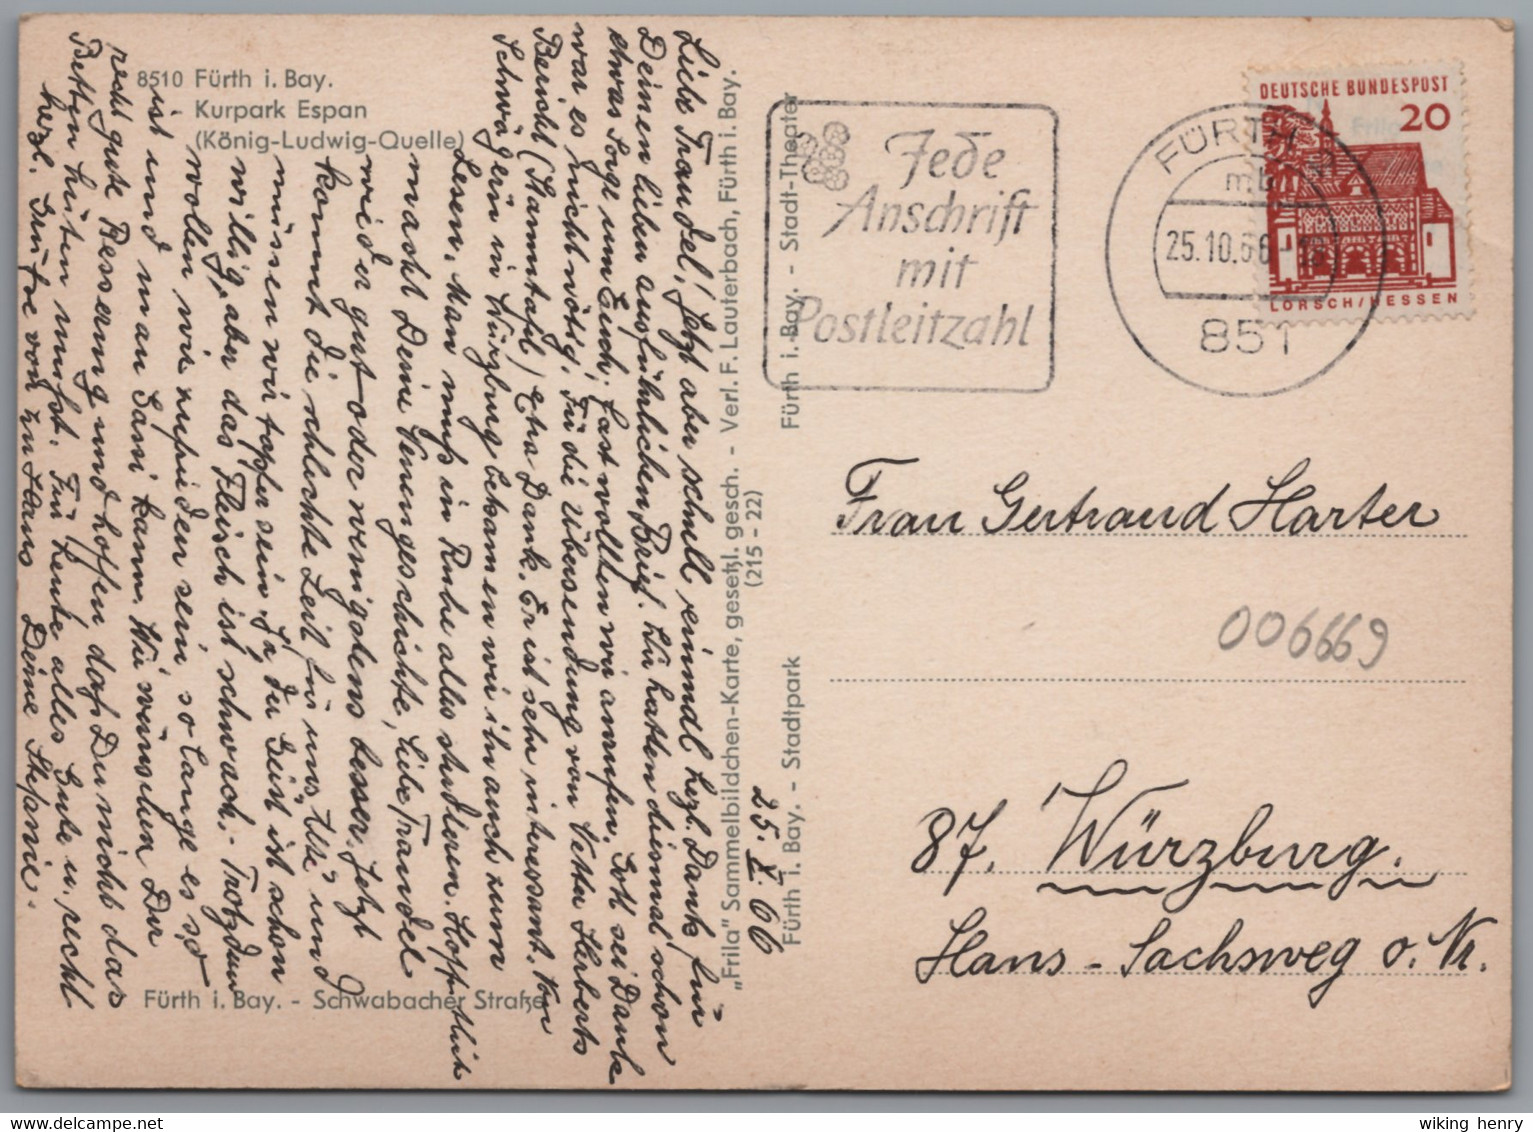 8510 Fürth i. Bay.
Kurpark Espan
(König-Ludwig-Quelle)
Fürth i. Bay. - Schwabacher Straße
Fürth i. Bay. - Stadt-Theater
Fürth i. Bay. - Stadtpark
„Frila" Sammelbildchen-Karte, gesetzl. gesch. - Verl. F. Lauterbach, Fürth i. Bay.
(215 - 22)
25. X. 66
Liebe Traudel! Jetzt aber schnell einmal herzl. Dank für
Deinen lieben ausführlichen Brief. Wir hatten diesmal schon
etwas Sorge um Euch; fast wollten wir anrufen. Gott sei Dank
war es nicht nötig. Für die Übersendung von Vetter Herberts
Bericht (Stammtafel) Extra Dank. Er ist sehr interessant. Von
Schwägerin in Würzburg bekamen wir ihn auch zum
Lesen. Man muß in Ruhe alles studieren. Hoffentlich
macht Deine Venengeschichte, liebe Traudel
wieder gut oder wenigstens besser. Jetzt
kommt die schlechte Zeit für uns "Alte" und
müssen wir tapfer sein. Ja der Geist ist schon
willig, aber das Fleisch ist schwach. - Trotzdem
wollen wir zufrieden sein so lange es so
ist und man kann. Wir wünschen Dir
recht gute Besserung und hoffen daß Du nicht das
Bett hüten mußt. Für heute alles Gute u. recht
herzl. Grüße von zu Haus Deine Stefanie.
Jede
Anschrift
mit
Postleitzahl
FÜRTH
25.10.66
851
DEUTSCHE BUNDESPOST
20
LORSCH/HESSEN
Frau Gertraud Harter
006669
87. Würzburg.
Hans-Sachsweg o. Nr.
wiking henry